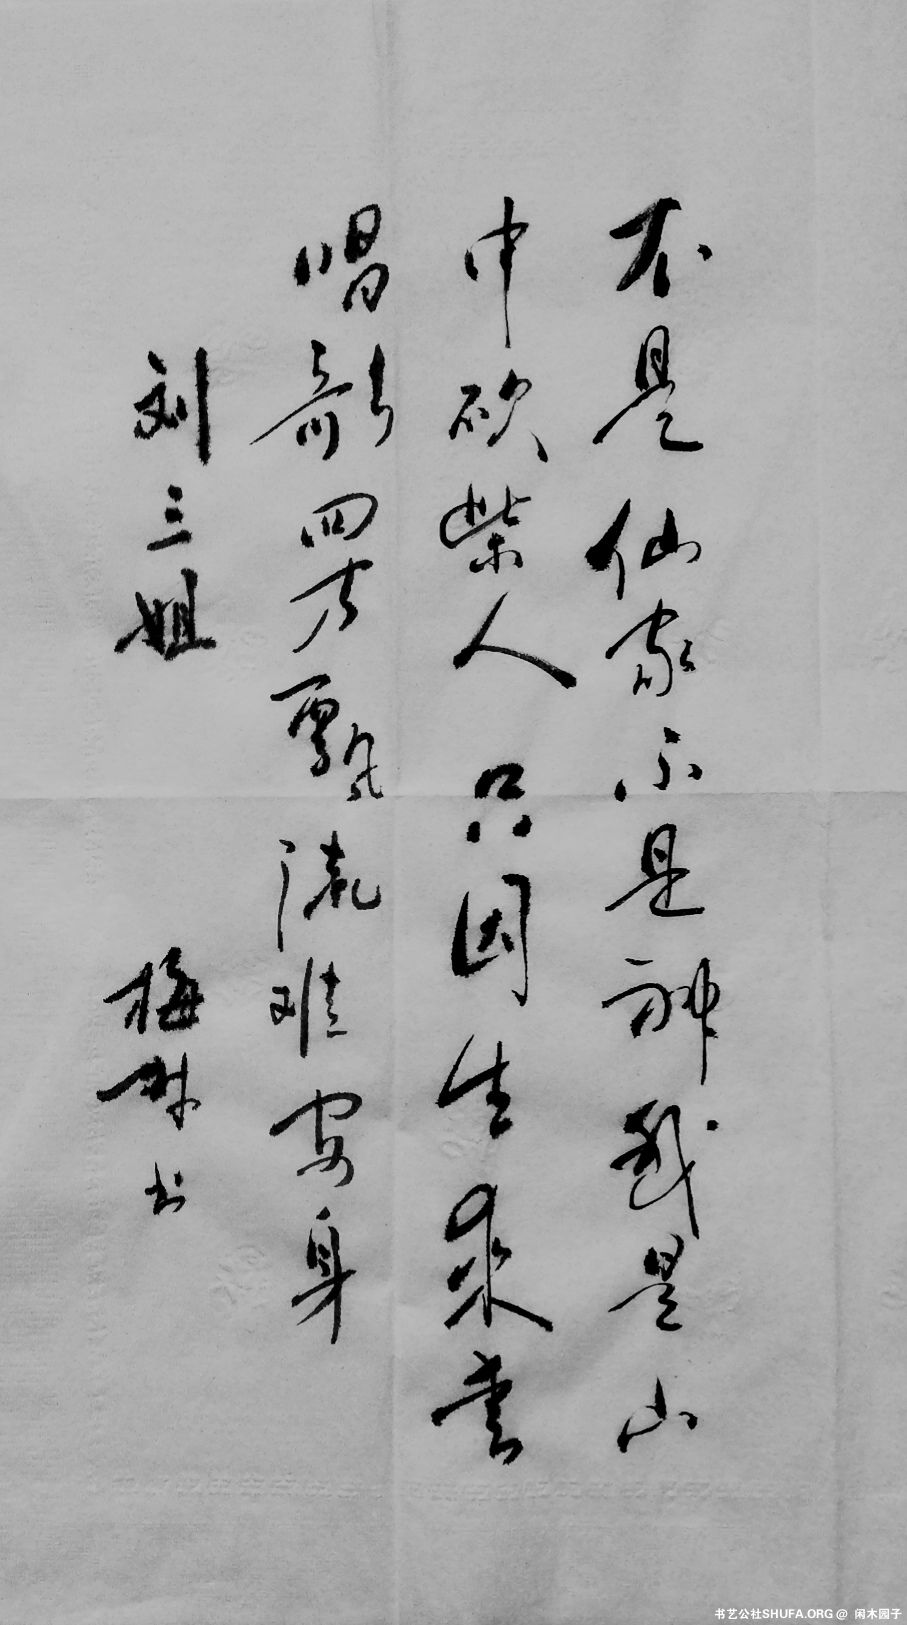 不是仙家不是神我是山
中砍柴人只因生来爱
唱歌四方飘流难安身
刘三姐
梅林书
书艺公社SHUFA.ORG @ 闲木园子